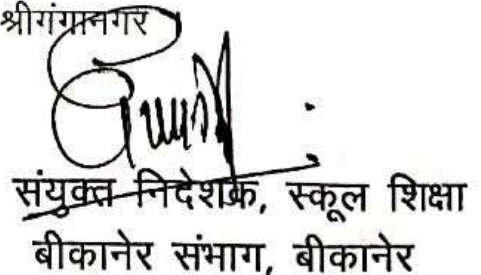 श्रीगंगानगर
संयुक्त निदेशक, स्कूल शिक्षा
बीकानेर संभाग, बीकानेर